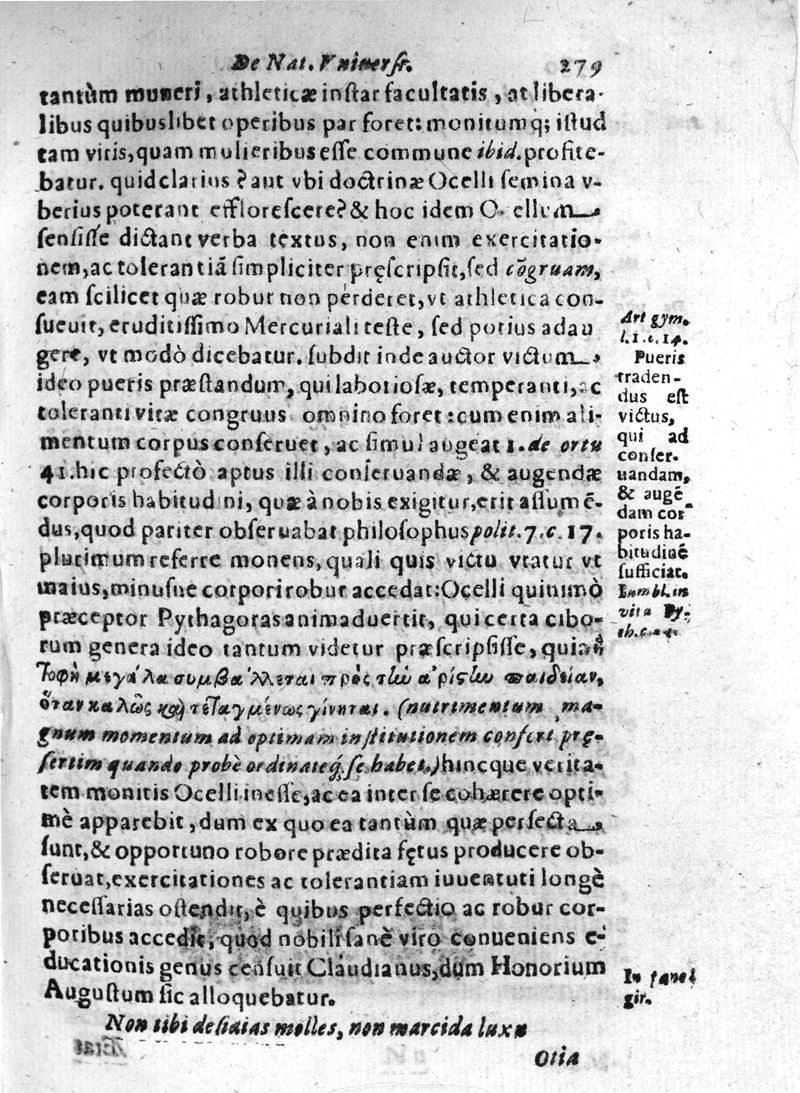 De Nat. Vniuersi.
279
tantùm muneri, athleticæ instar facultatis, at libera-
libus quibuslibet operibus par foret: monitumq; istud
tam viris, quam mulieribus esse commune ibid. profite-
batur. quid clarius? aut vbi doctrinæ Ocelli semina v-
berius poterant efflorescere? & hoc idem O ellum
sensisse dictant verba textus, non enim exercitatio-
nem, ac tolerantiã simpliciter pręscripsit, sed cõgruam,
eam scilicet quæ robur non perderet, vt athletica con-
sueuit, eruditissimo Mercuriali teste, sed potius adau
gere, vt modò dicebatur. subdit inde auctor victum
ideo pueris præstandum, qui laboriosæ, temperanti, ac
toleranti vitæ congruus omnino foret: cum enim ali-
mentum corpus conseruet, ac simul augeat 1. de ortu
41. hic profectò aptus illi conseruandæ, & augendæ
corporis habitudini, quæ à nobis exigitur, erit assumē-
dus, quod pariter obseruabat philosophus polit. 7. c. 17.
plurimum referre monens, quali quis victu vtatur vt
maius, minusue corpori robur accedat: Ocelli quinimò
præceptor Pythagoras animaduertit, qui certa cibo-
rum genera ideo tantum videtur præscripsisse, quia ἡ
τροφὴ μεγάλα συμβάλλεται πρὸς τὼ ἀρίστω παιδείαν,
ὅταν καλῶς καὶ τεταγμένως γίνηται. (nutrimentum ma-
gnum momentum ad optimam institutionem confert prę-
sertim quando probè ordinateq́; se habet.) hincque verita-
tem monitis Ocelli inesse, ac ea inter se cohærere opti-
mè apparebit, dum ex quo ea tantùm quæ perfecta
sunt, & opportuno robore prædita fętus producere ob-
seruat, exercitationes ac tolerantiam iuuentuti longè
necessarias ostendit, è quibus perfectio ac robur cor-
poribus accedit, quod nobili sanè viro conueniens e-
ducationis genus censuit Claudianus, dum Honorium
Augustum sic alloquebatur.
Non tibi desidias molles, non marcida luxu
Otia
Art gym.
l. 1. c. 14.
Pueris
traden-
dus est
victus,
qui ad
conser-
uandam,
& augē
dam cor
poris ha-
bitudinē
sufficiat.
Iambl. in
vita Py-
th. c.
In panel
gir.